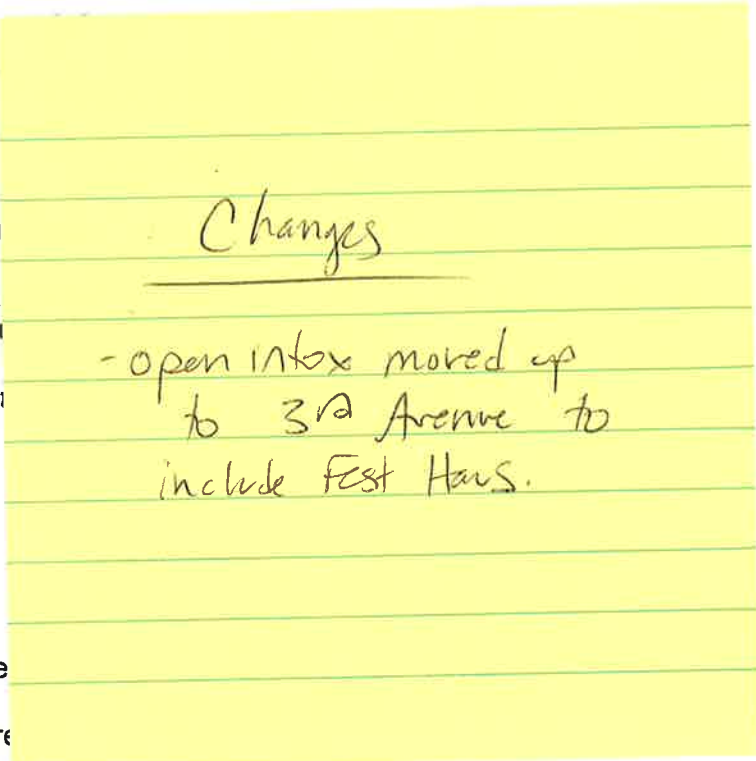 Changes
- open intox moved up
to 3rd Avenue to
include Fest Haus.
e
re